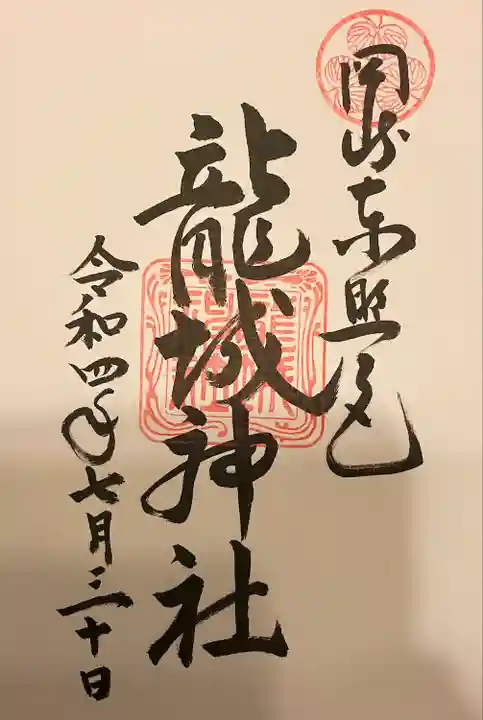 岡崎東照宮
龍城神社
令和四年七月三十日